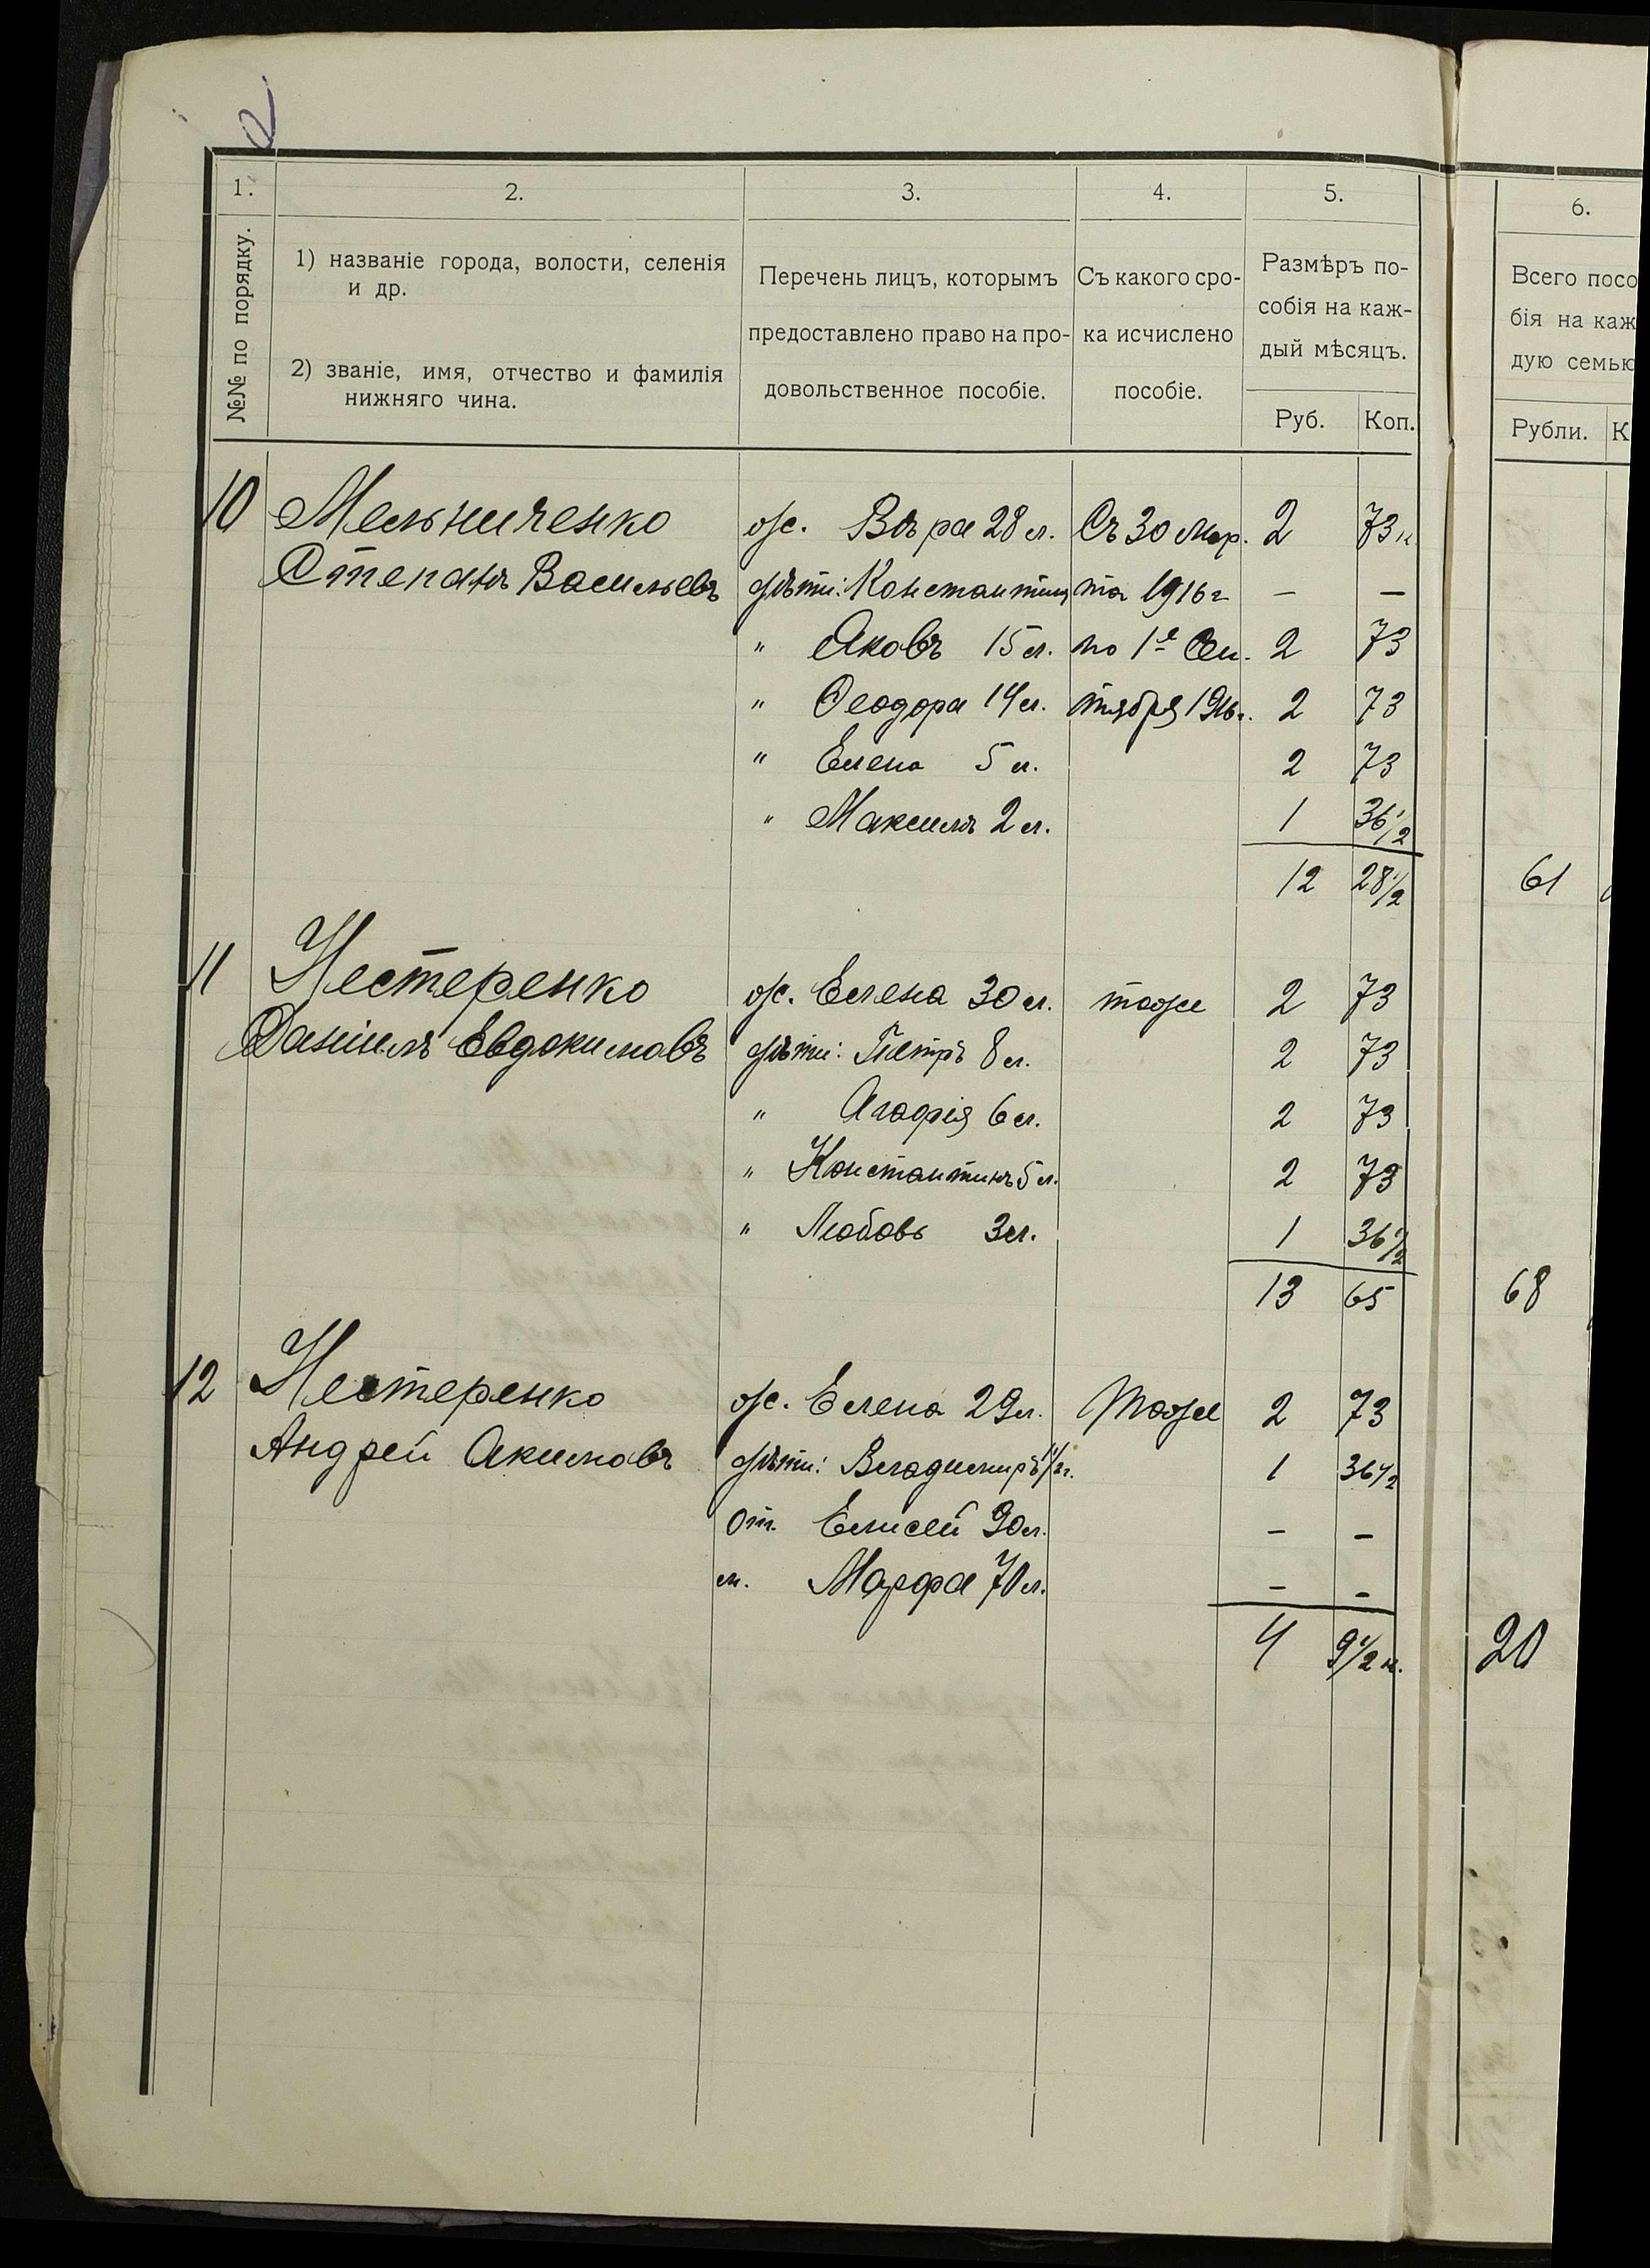 1. 2. 3. 4. 5. 6.
№№ по порядку.
1) названіе города, волости, селенія
и др.
2) званіе, имя, отчество и фамилія
нижняго чина.
Перечень лицъ, которымъ
предоставлено право на про-
довольственное пособіе.
Съ какого сро-
ка исчислено
пособіе.
Размѣръ по-
собія на каж-
дый мѣсяцъ.
Руб. Коп.
Всего посо
бія на каж
дую семью
Рубли. К
10 Мельниченко ж. Вѣра 28 л. Съ 30 Мар. 2 73 к
Степанъ Васильевъ дѣти: Константин та 1916 г — —
" Яковъ 15 л. по 1е Сен. 2 73
" Феодора 14 л. тября 1916 г. 2 73
" Елена 5 л. 2 73
" Максимъ 2 л. 1 36 1/2
12 28 1/2 61
11 Нестеренко ж. Елена 30 л. тоже 2 73
Даніилъ Евдокимовъ дѣти: Петръ 8 л. 2 73
" Агафія 6 л. 2 73
" Константинъ 5 л. 2 73
" Любовь 3 л. 1 36 1/2
13 65 68
12 Нестеренко ж. Елена 29 л. Тоже 2 73
Андрей Акимовъ дѣти: Владимиръ 1/2 г. 1 36 1/2
от. Елисей 90 л. — —
м. Марфа 70 л. — —
4 9 1/2 к. 20